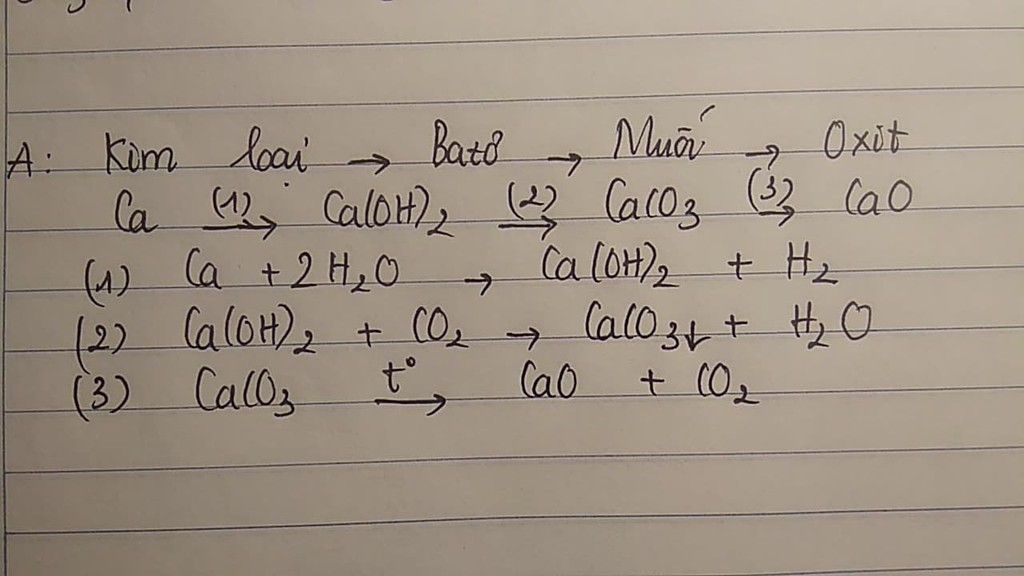 A: Kim loại → Bazơ → Muối → Oxit
Ca (1)→ Ca(OH)₂ (2)→ CaCO₃ (3)→ CaO
(1) Ca + 2H₂O → Ca(OH)₂ + H₂
(2) Ca(OH)₂ + CO₂ → CaCO₃↓ + H₂O
(3) CaCO₃ t°→ CaO + CO₂